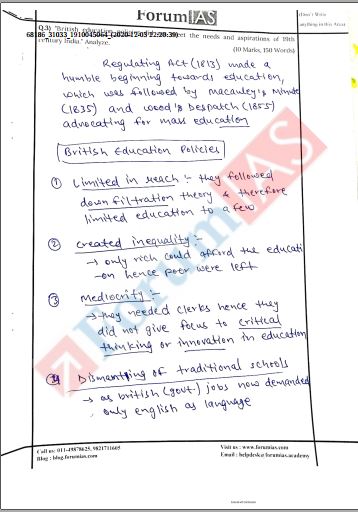 Forum IAS
Q.3) "British education
meet the needs and aspirations of 19th
68186_31033_1910045064_(2020-12-05 12:20:39)
century India." Analyze.
(10 Marks, 150 Words)
(Don't Write
anything in this Area)
Regulating Act (1813) made a
humble beginning towards education,
which was followed by Macauley's Minute
(1835) and Wood's Despatch (1855)
advocating for mass education
British Education Policies
① Limited in reach :- they followed
down filtration theory & therefore
limited education to a few
② created inequality :-
→ only rich could afford the educati
-on hence poor were left
③ Mediocrity :-
→ they needed clerks hence they
did not give focus to critical
thinking or innovation in education
④ Dismantling of traditional schools
→ as british (govt.) jobs now demanded
only english as language
Call us: 011-49878625, 9821711605
Blog : blog.forumias.com
Visit us : www.forumias.com
Email : helpdesk@forumias.academy
ForumIAS